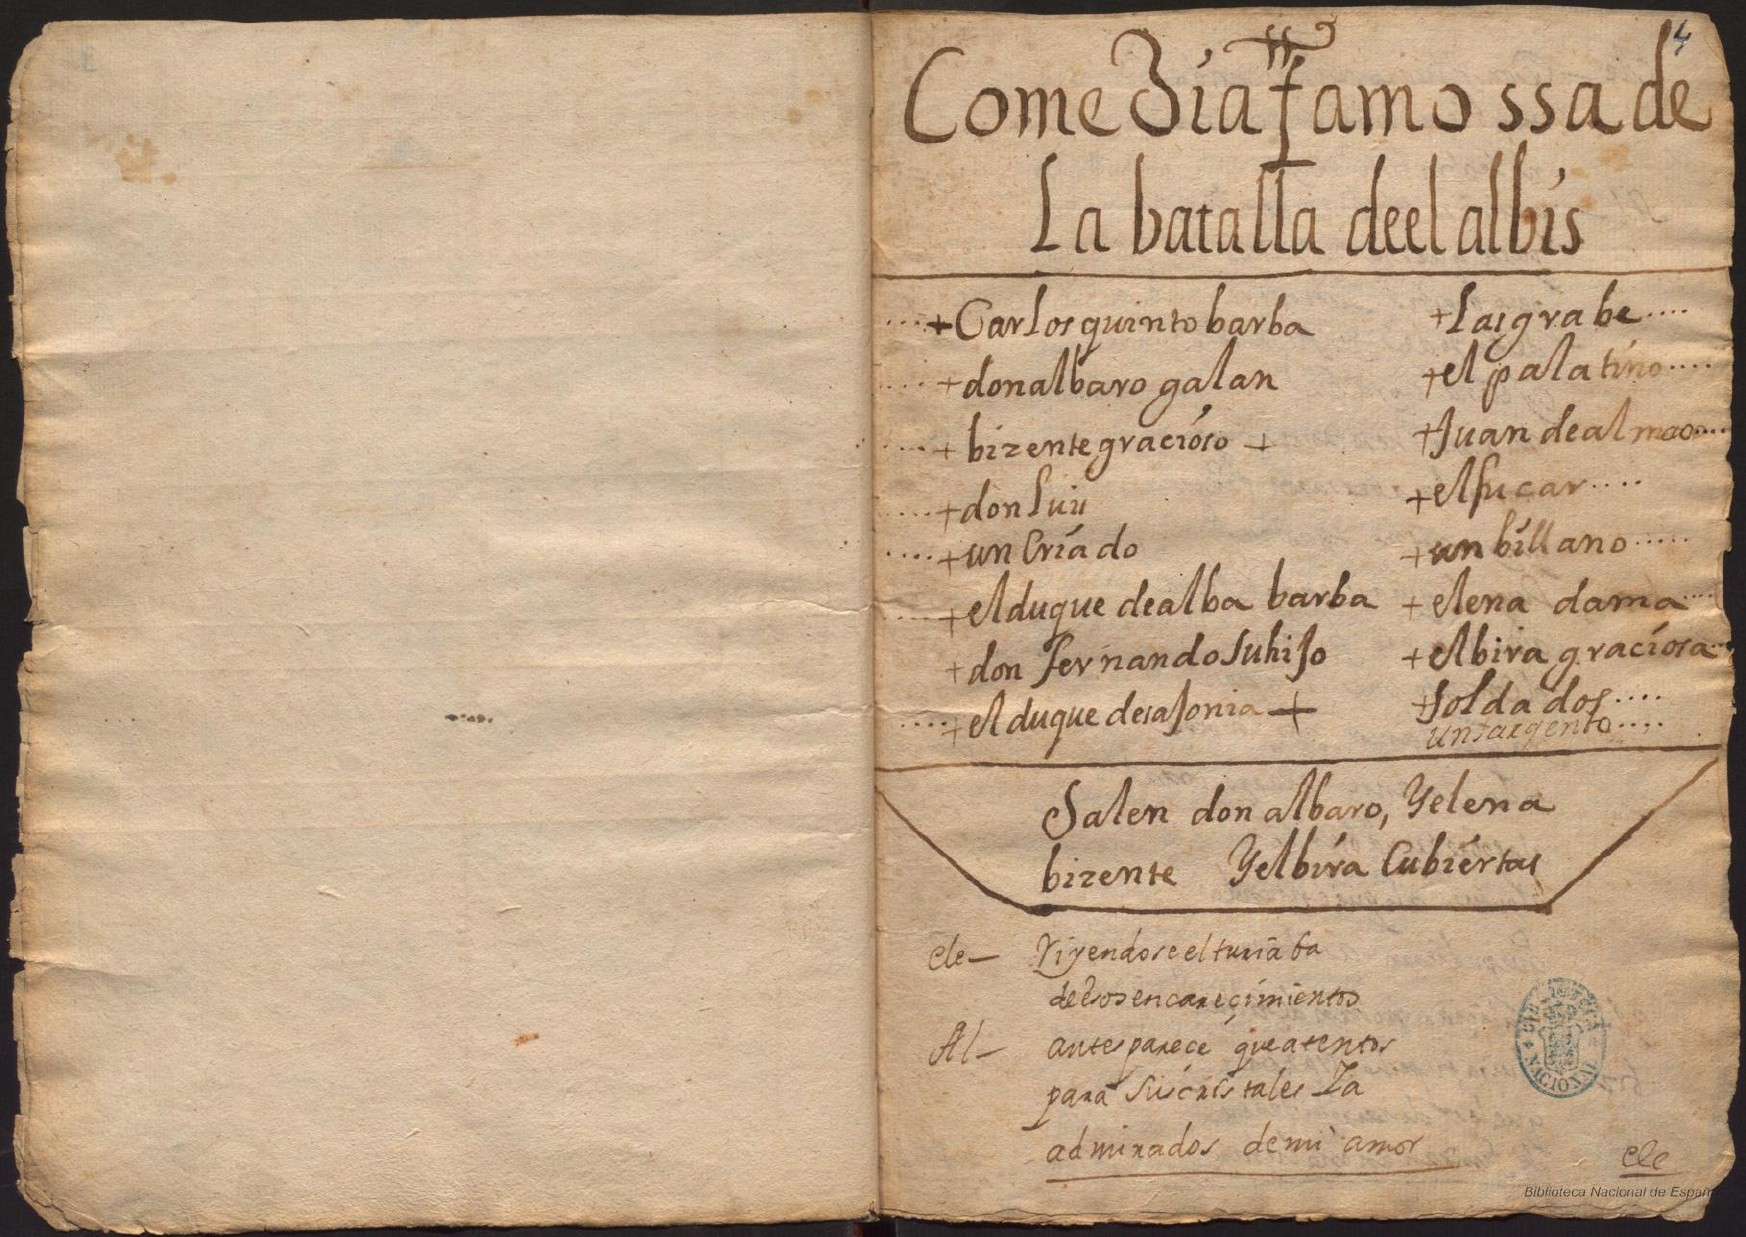 4
Comedia famossa de
La batalla de el albis
+ Carlos quinto barba
+ don albaro galan
+ bizente gracioso +
+ don luis
+ un criado
+ el duque de alba barba
+ don fernando su hijo
+ el duque de sajonia +
+ Lasgrabe
+ el palatino
+ Juan de
+ el fucar
+ un billano
+ elena dama
+ elbira graciosa
+ soldados
un sargento
Salen don albaro, Y elena
bizente Y elbira Cubiertas
ele— riyendose el turia ba
de esos encareçimientos
Al— antes parece que atentos
para sus cristales Ya
admirados de mi amor
ele
BIBLIOTECA NACIONAL
Biblioteca Nacional de España